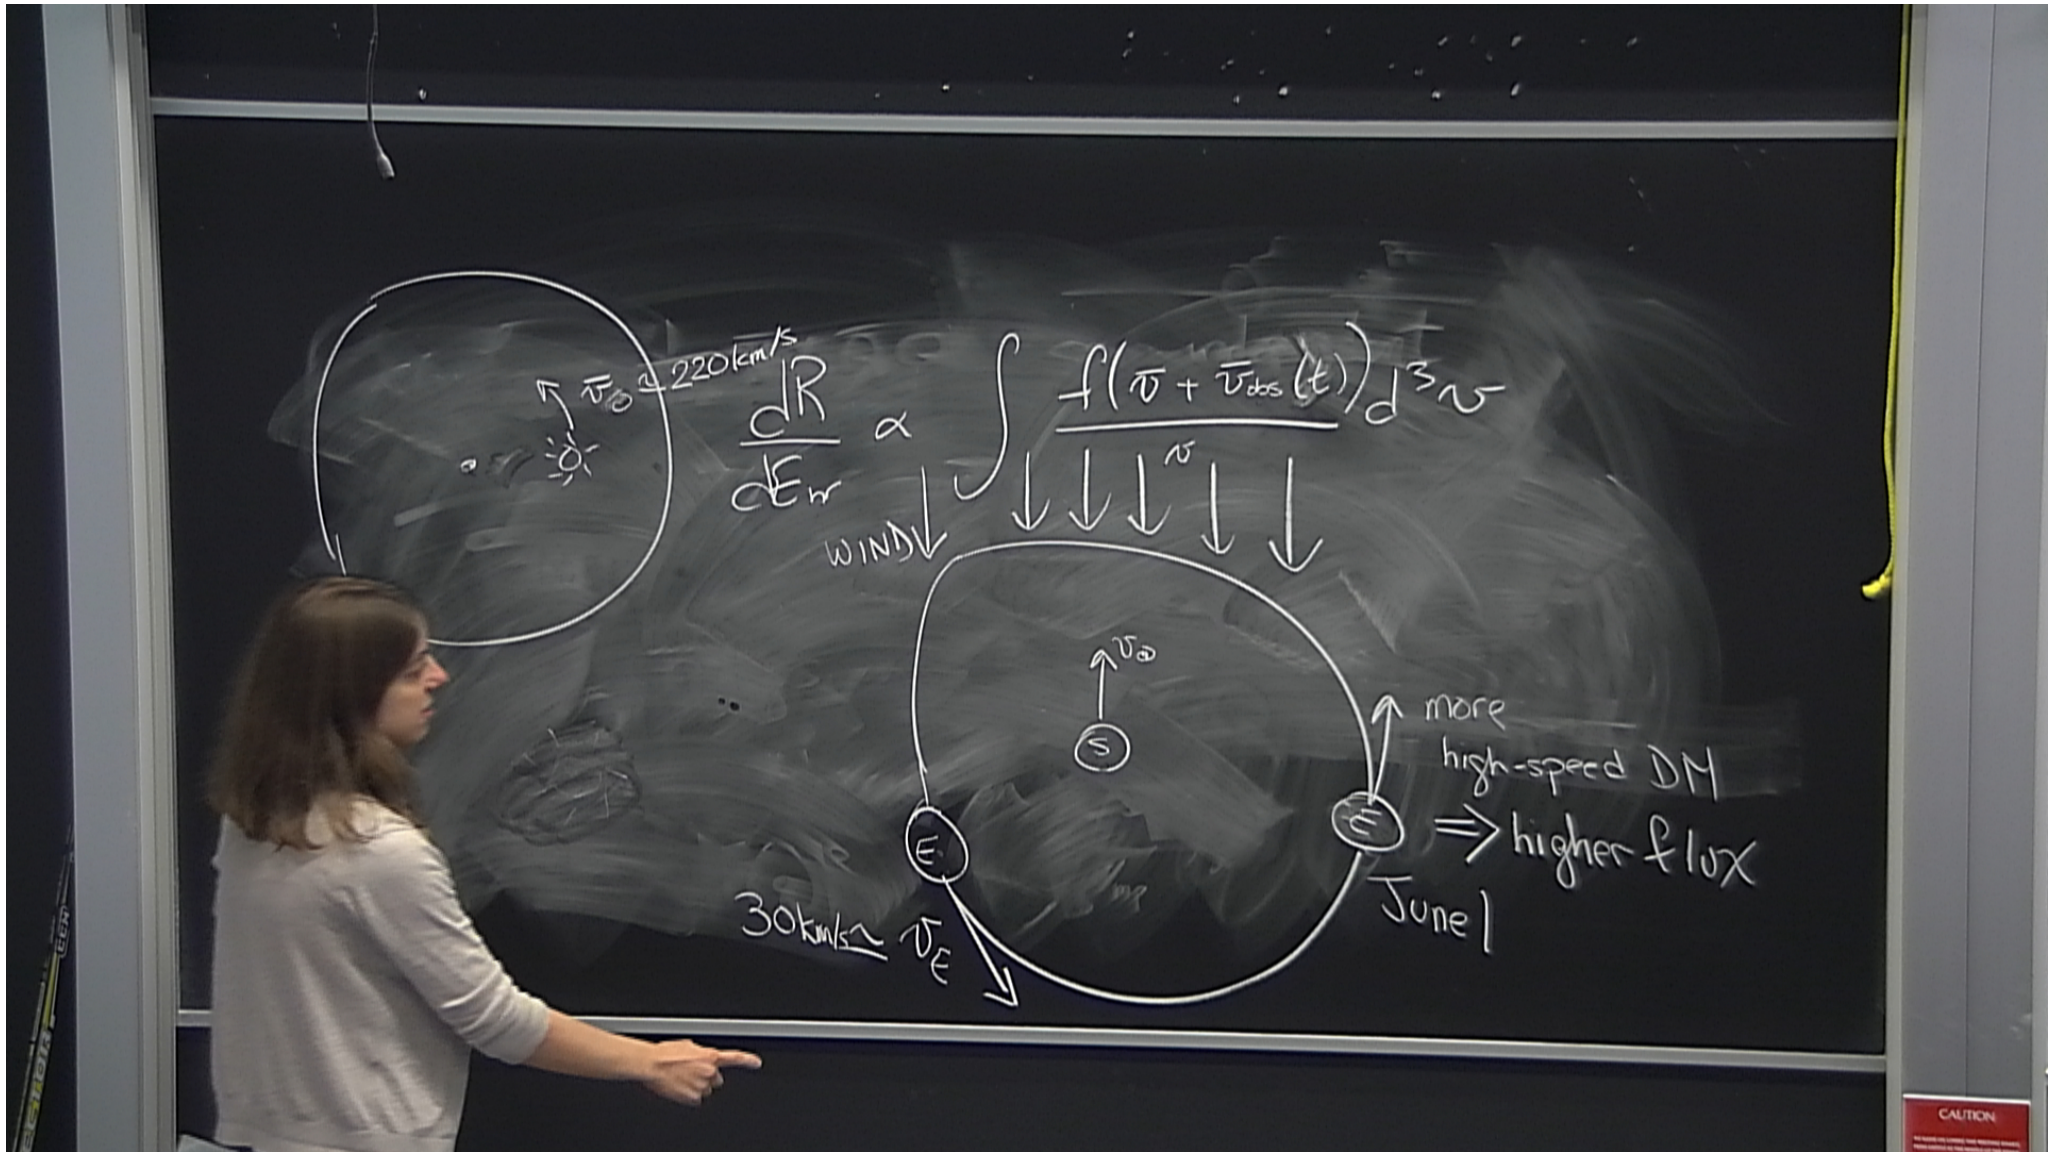 v̄⊙ ≈ 220 km/s
dR/dEnr ∝ ∫ f(v̄ + v̄obs(t))/v d³v
WIND
v⊙
S
E
E
more
high-speed DM
⇒ higher flux
June 1
30 km/s ~ vE
CAUTION